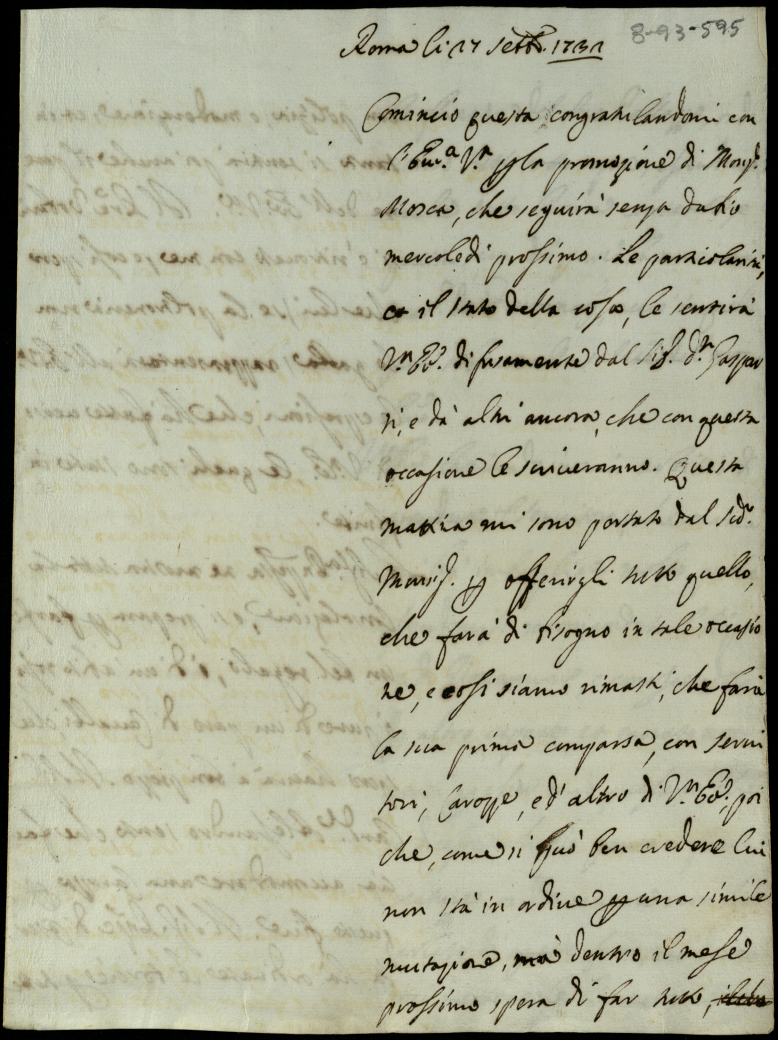 8-93-595
Roma li 27 settb. 1732
Comincio questa congratulandomi con
l'Em.a V.ra p la promozione di Mong.r
Mosca, che seguirà senza dubio
mercoledi prossimo. Le particolarità,
e il stato della cosa, le sentirà
V.ra Ec. difusamente dal Sig. D.n Gaspar
ri, e da altri ancora, che con questa
occasione le scriveranno. Questa
mattina mi sono portato dal sud.o
Monsig. p offerirgli tutto quello,
che farà di bisogno in tale occasio
ne, e cosi siamo rimasti, che farà
la sua prima comparsa, con servi
tori, Carozze, ed altro di V.ra Ec., poi
che, come si può ben credere lui
non stà in ordine p una simile
mutazione, mà dentro il mese
prossimo spera di far tutto,